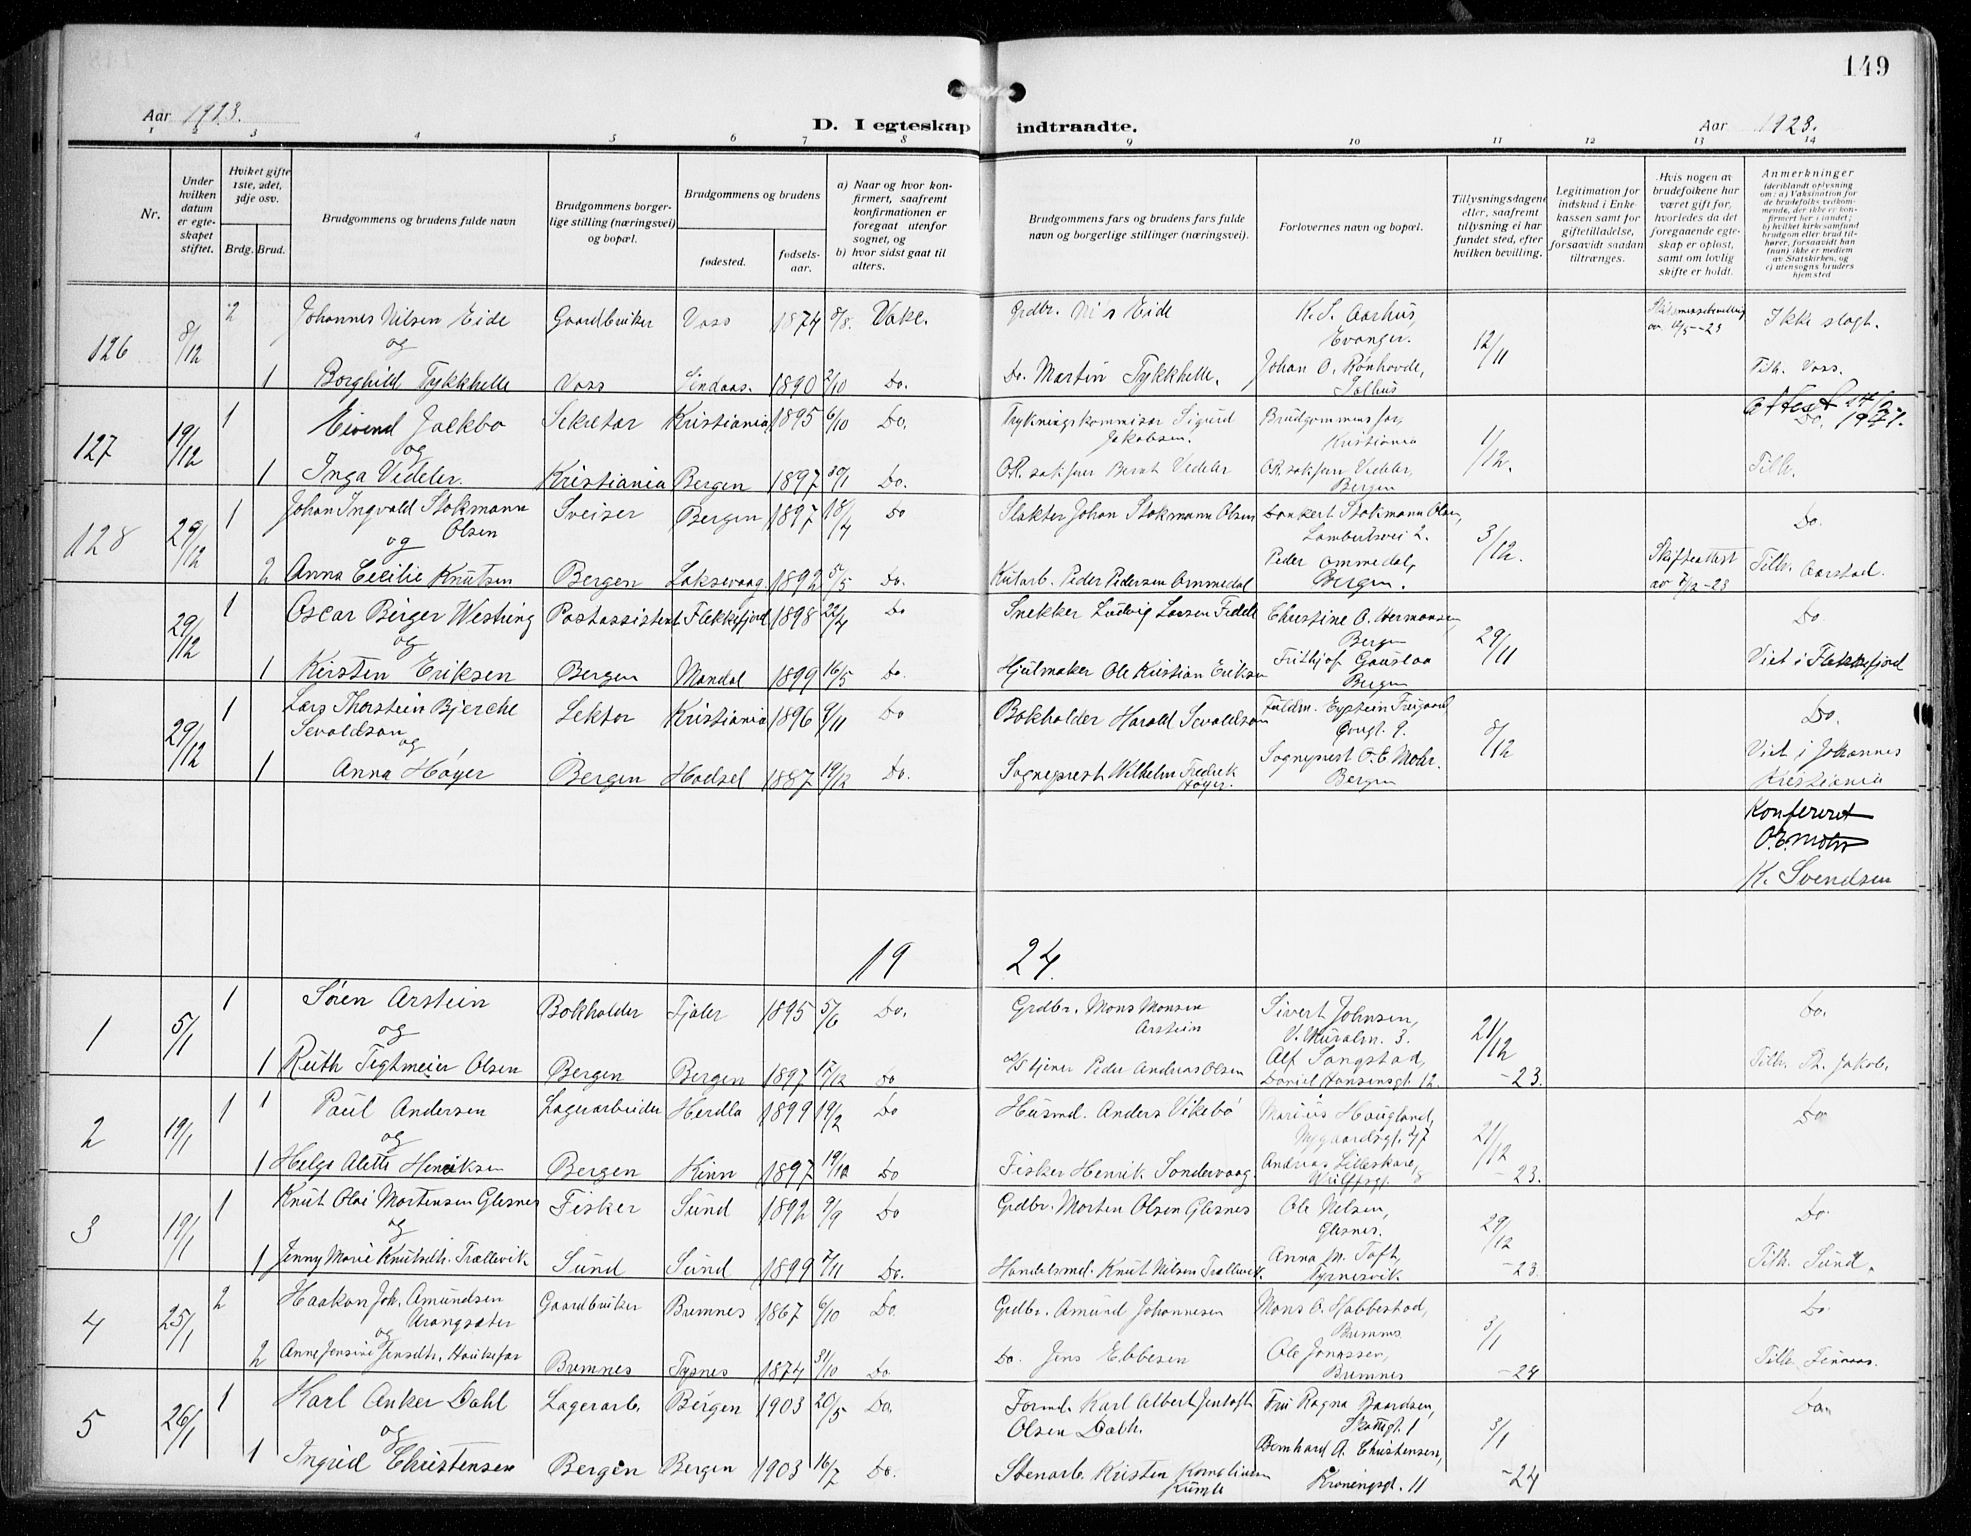 149
Aar 1923.
D. I egteskap indtraadte.
Aar 1923.
1 2 3 4 5 6 7 8 9 10 11 12 13 14
Nr.
Under hvilken datum er egteskapet stiftet.
Hvilket gifte 1ste, 2det, 3dje osv.
Brdg. Brud.
Brudgommens og brudens fulde navn
Brudgommens borgerlige stilling (næringsvei) og bopæl.
Brudgommens og brudens
fødested.
fødselsaar.
a) Naar og hvor konfirmert, saafremt konfirmationen er foregaat utenfor sognet, og
b) hvor sidst gaat til alters.
Brudgommens fars og brudens fars fulde navn og borgerlige stillinger (næringsvei).
Forlovernes navn og bopæl.
Tillysningsdagene eller, saafremt tillysning ei har fundet sted, efter hvilken bevilling.
Legitimation for indskud i Enkekassen samt for giftetilladelse, forsaavidt saadan tiltrænges.
Hvis nogen av brudefolkene har været gift før, hvorledes da det foregaaende egteskap er opløst, samt om lovlig skifte er holdt.
Anmerkninger
(deriblandt oplysning om: a) Vaksination for de brudefolks vedkommende, der ikke er konfirmert her i landet; b) hvilket kirkesamfund brudgom eller brud tilhører, forsaavidt han (hun) ikke er medlem av Statskirken, og c) utensogns bruders hjemsted
126 8/12 2 Johannes Nilsen Eide Gaardbruker Voss 1874 8/8. Vake. Grdbr. Nils Eide K. S. Aarhus, Evanger. 12/11 Ikke slegt.
og
1 Borghild Tykkhelle Voss Lindaas. 1890 2/10 Do. Do. Martin Tykkhelle. Johan O. Rønhovde, Tilh. Voss.
127 19/12 1 Eivind Jackbo Sekretær Kristiania 1895 6/10 Do. Trykningskommisær Sigurd Jakobsen. Brudgommens far, Kristiania 1/12. Attest Do. 1947.
og
1 Inga Vedeler. Kristiania Bergen 1897 30/1 Do. O.R. sakfører Bernt Vedeler O.R. sakføre Vedeler, Bergen Tilh.
128 29/12 1 Johan Ingvald Stokmann Olsen Sveiser Bergen 1897 18/4 Do Slakter Johan Stokmann Olsen Dankert Stokmann Olsen, Lambertsvei 2. 3/12. Do.
og
2 Anna Cecilie Knutsen Bergen Laksevaag 1892 5/5 Do. Peder Pedersen Ommedal Peder Ommedal, Bergen. Skifteattest av 7/12 -23 Tilh. Aarstad.
29/12 1 Oscar Birger Westring Postassistent Flekkefjord 1898 22/4 Do Snekker Ludvig Larsen Fidell Christine O. Hermansen, Bergen 29/11 Do.
og
1 Kirsten Eriksen Bergen Mandal 1899 16/5 Do. Hjulmaker Ole Kristian Eriksen Fritjof Gauslaa Bergen Viet i Flekkefjord
29/12 1 Lars Thorstein Bjerche Sevaldson Lektor Kristiania 1896 9/11 Do Bokholder Harald Sevaldson Fuldm. Eystein Freigaard, 8/12 Do.
og
1 Anna Høyer Bergen Hadsel 1887 19/12 Do. Sogneprest Wilhelm Fredrik Høyer. Sogneprest O. E. Mohr. Bergen Viet i Johannes Kristiania
Konfereret
O. E. Mohr
K. Svendsen
19 24.
1 5/1 1 Søren Arstein Bokholder Fjaler 1895 5/6 Do. Grdbr. Mons Monsen Arstein Sivert Johnsen, V. Muralm. 3. 21/12 -23. Do.
og
1 Ruth Tightmeier Olsen Bergen Bergen 1897 17/12 Do Peder Andreas Olsen Alf Sangstad, Daniel Hansensgt. 12. Tilh. St. Jakob.
2 19/1 1 1 Paul Andersen Lagerarbeider Herdla 1899 19/2 Do Husmd. Anders Vikebø Marius Haugland, Nygaardsgt. 47 21/12 -23. Do
og
1 Helga Alette Henriksen Bergen Kinn 1897 19/10 Do Fisker Henrik Sondervaag. Andreas Lilleskare,
3 19/1 1 Knut Olai Mortensen Glesnes Fisker Sund 1892 9/9 Do Grdbr. Morten Olsen Glesnes Ole Nelsen, Glesnes. 29/12 -23. Do
og
1 Jenny Marie Knutsdtr. Trællevik Sund Sund 1899 7/11 Do. Handelsmd. Knut Nilsen Trællevik. Anna M. Toft, Tyrnesvik Tilh. Sund.
4 25/1 2 Haakon Joh. Amundsen Arangsæter Gaardbruker Bremnes 1867 6/10 Do. Grdbr. Amund Johannesen Mons O. Habbestad, Bremnes 3/1 -24 Do
og
2 Anne Jensine Jensdtr. Haukefær Bremnes Tysnes 1874 31/10 Do. Do. Jens Ebbesen Ole Jonassen, Bremnes Tilh. Finnaas.
5 26/1 1 Karl Anker Dahl Lagerarb. Bergen 1903 20/5 Do. Formd. Karl Albert Jentoft Olsen Dahl. Fru Ragna Baardsen, Skottegt. 1 3/1 -24 Do.
og
1 Ingrid Christensen Bergen Bergen 1903 16/7 Do. Stenarb. Kristen Kornelius Kumle Bernhard A. Christensen, Kroningsgt. 11